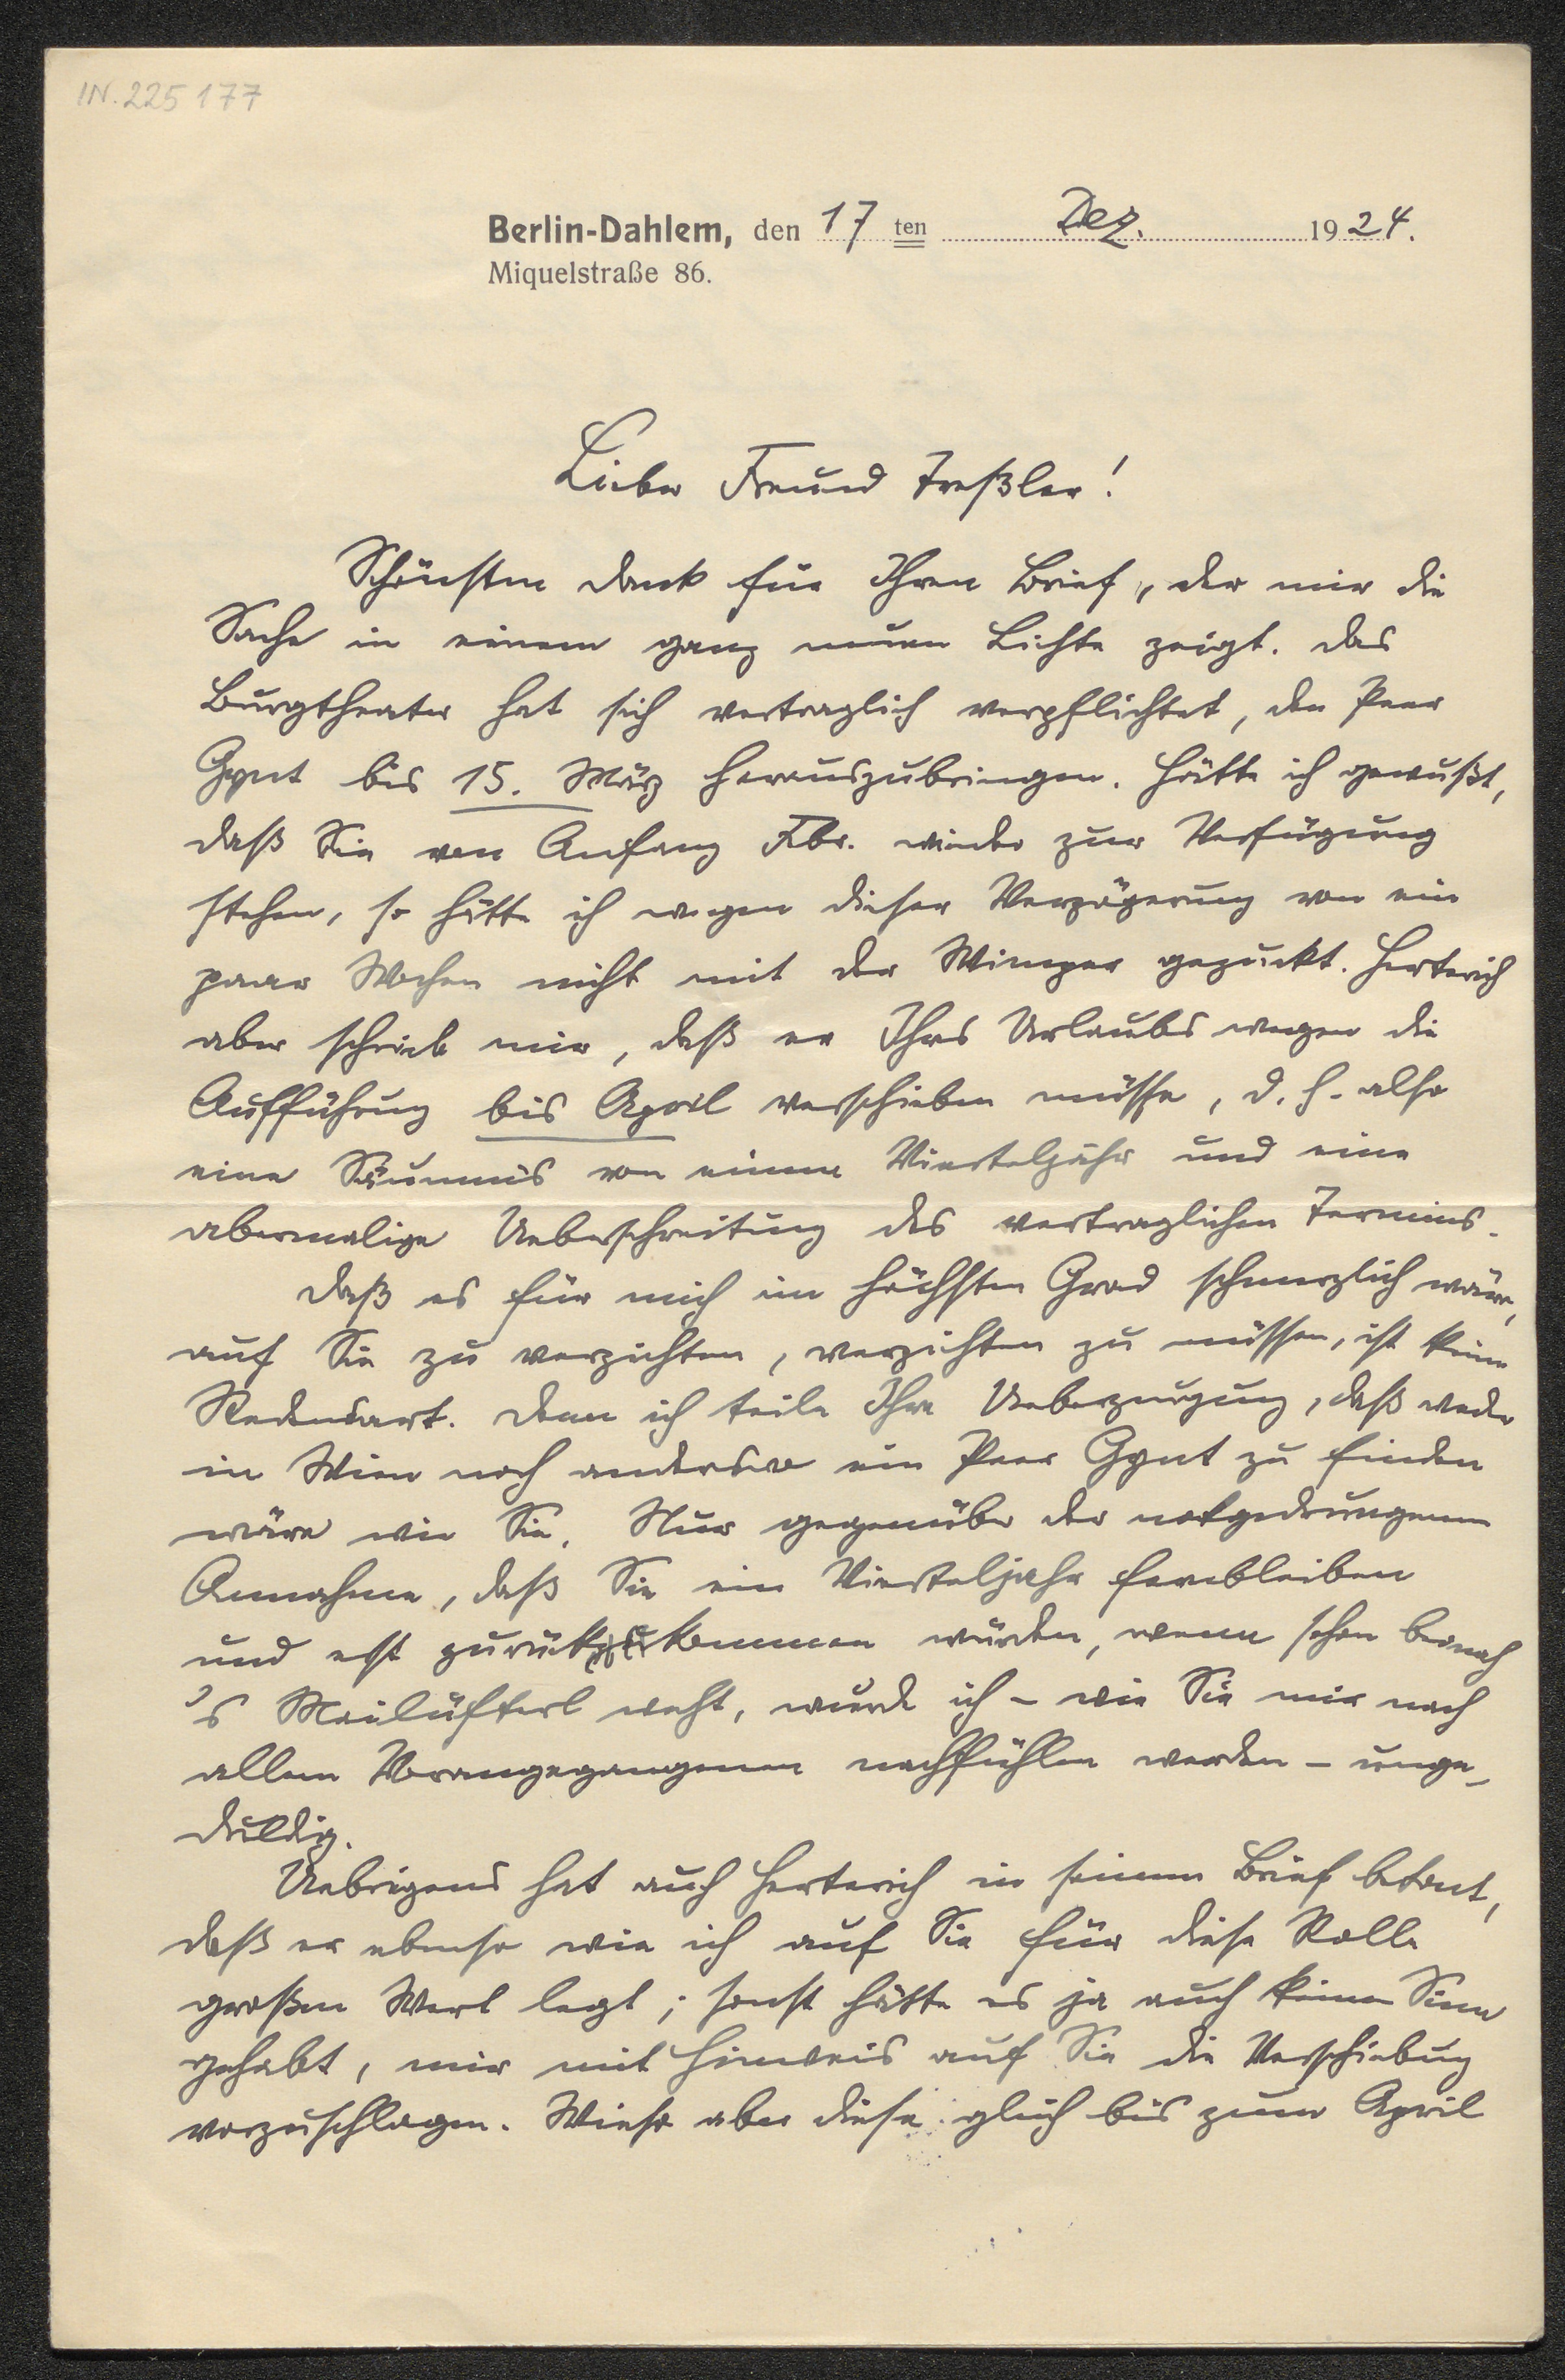 IN. 225 177
Berlin-Dahlem, den 17 ten Dez. 1924.
Miquelstraße 86.
Lieber Freund Treßler!
Schönsten Dank für Ihren Brief, der mir die
Sache in einem ganz neuen Lichte zeigt. Das
Burgtheater hat sich vertraglich verpflichtet, den Peer
Gynt bis 15. März herauszubringen. Hätte ich gewußt,
daß Sie von Anfang Fbr. wieder zur Verfügung
stehen, so hätte ich wegen dieser Verzögerung von ein
paar Wochen nicht mit der Wimper gezuckt. Herterich
aber schrieb mir, daß er Ihres Urlaubs wegen die
Aufführung bis April verschieben müsse, d. h. also
eine Säumnis von einem Vierteljahr und eine
abermalige Ueberschreitung des vertraglichen Termins.
Daß es für mich im höchsten Grad schmerzlich wäre,
auf Sie zu verzichten, verzichten zu müssen, ist keine
Redensart. Denn ich teile Ihre Ueberzeugung, daß weder
in Wien noch anderswo ein Peer Gynt zu finden
wäre wie Sie. Nur gegenüber der notgedrungenen
Annahme, daß Sie ein Vierteljahr fernbleiben
und erst zurückkommen würden, wenn schon beinah
's Mailüfterl weht, wurde ich – wie Sie mir nach
allem Vorangegangenen nachfühlen werden – unge-
duldig.
Uebrigens hat auch Herterich in seinem Brief betont,
daß er ebenso wie ich auf Sie für diese Rolle
großen Wert legt; sonst hätte es ja auch keinen Sinn
gehabt, mir mit Hinweis auf Sie die Verschiebung
vorzuschlagen. Wieso aber diese gleich bis zum April